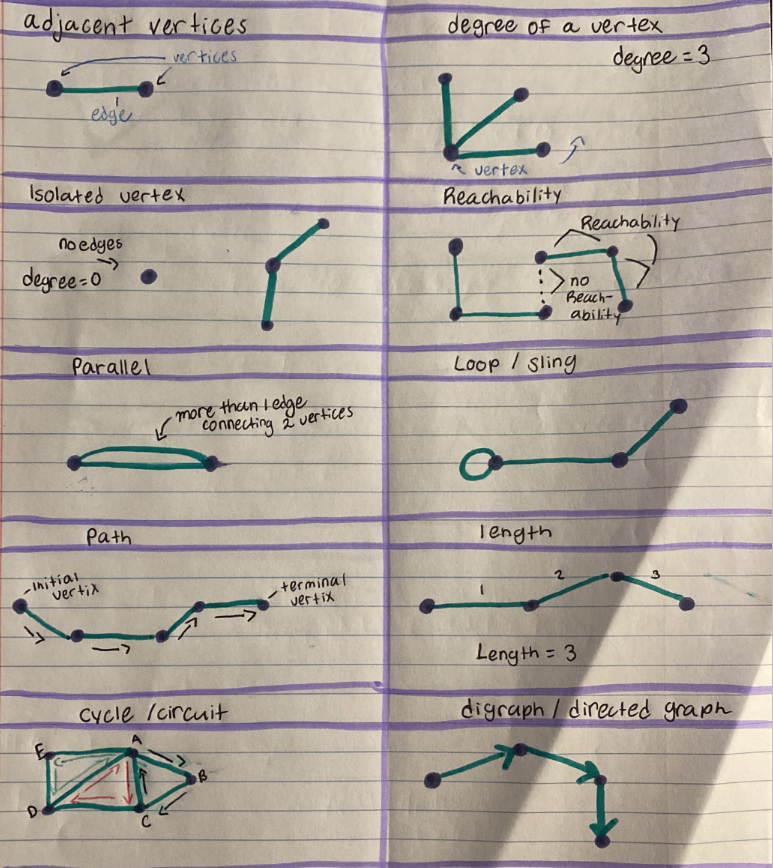 adjacent vertices
vertices
edge
degree of a vertex
degree = 3
vertex
Isolated vertex
no edges
degree=0
Reachability
Reachability
no
Reach-
ability
Parallel
more than 1 edge
connecting 2 vertices
Loop / sling
Path
initial
vertix
terminal
vertix
length
1
2
3
Length = 3
cycle / circuit
E
A
B
D
C
digraph / directed graph